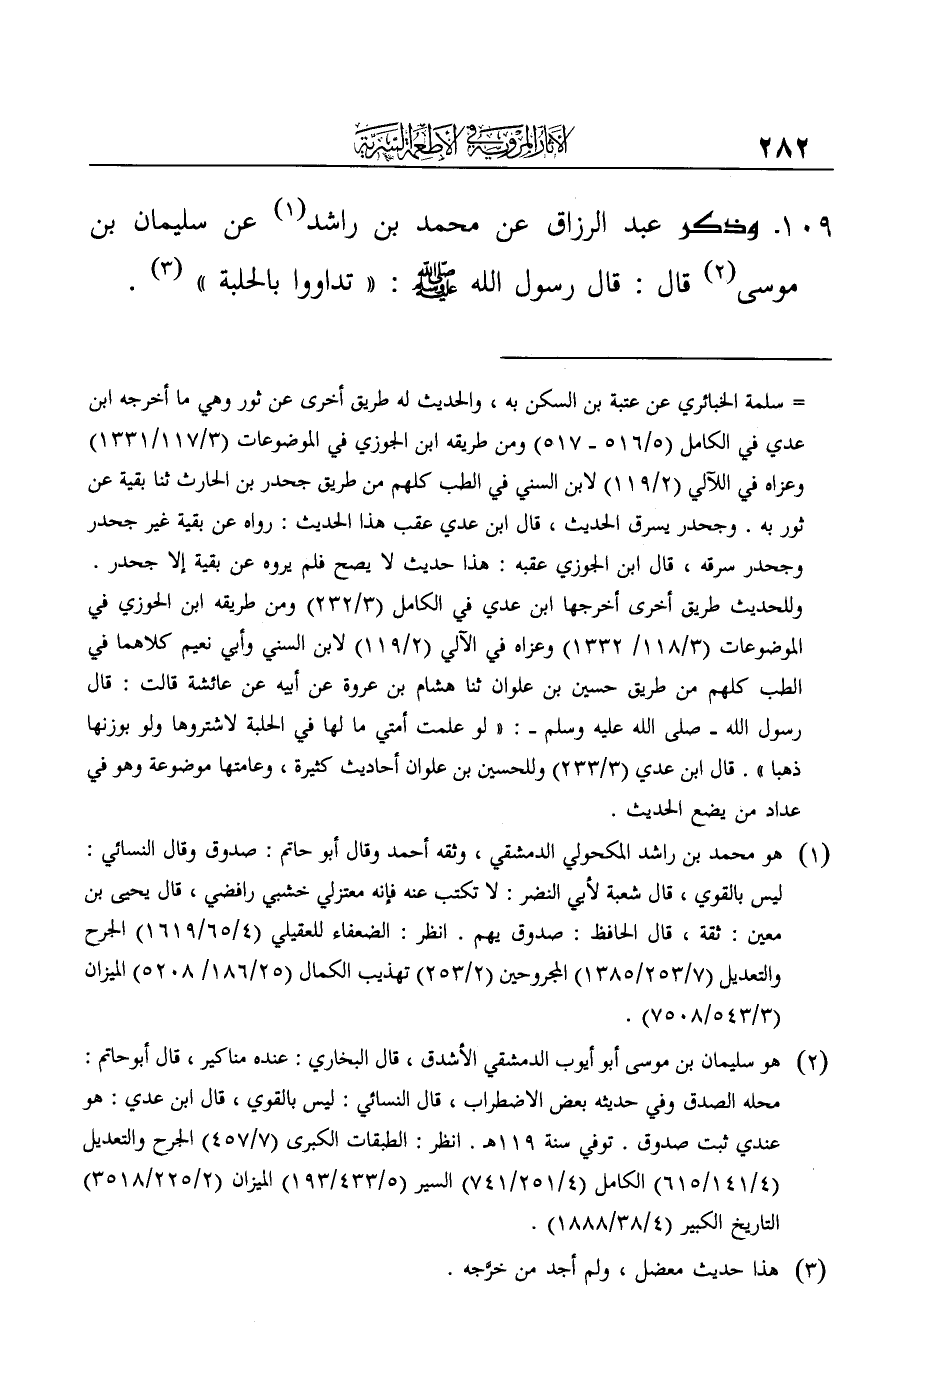 ٢٨٢
الآثار المروية في الأطعمة السرية
١٠٩. وذكر عبد الرزاق عن محمد بن راشد(١) عن سليمان بن
موسى(٢) قال : قال رسول الله ﷺ : « تداووا بالحلبة » (٣) .
= سلمة الخبائري عن عتبة بن السكن به ، والحديث له طريق أخرى عن ثور وهي ما أخرجه ابن
عدي في الكامل (٥١٦/٥ ـ ٥١٧) ومن طريقه ابن الجوزي في الموضوعات (١٣٣١/١١٧/٣)
وعزاه في اللآلي (١١٩/٢) لابن السني في الطب كلهم من طريق جحدر بن الحارث ثنا بقية عن
ثور به . وجحدر يسرق الحديث ، قال ابن عدي عقب هذا الحديث : رواه عن بقية غير جحدر
وجحدر سرقه ، قال ابن الجوزي عقبه : هذا حديث لا يصح فلم يروه عن بقية إلا جحدر .
وللحديث طريق أخرى أخرجها ابن عدي في الكامل (٢٣٢/٣) ومن طريقه ابن الجوزي في
الموضوعات (١١٨/٣/ ١٣٣٢) وعزاه في الآلي (١١٩/٢) لابن السني وأبي نعيم كلاهما في
الطب كلهم من طريق حسين بن علوان ثنا هشام بن عروة عن أبيه عن عائشة قالت : قال
رسول الله ـ صلى الله عليه وسلم ـ : « لو علمت أمتي ما لها في الحلبة لاشتروها ولو بوزنها
ذهبا » . قال ابن عدي (٢٣٣/٣) وللحسين بن علوان أحاديث كثيرة ، وعامتها موضوعة وهو في
عداد من يضع الحديث .
(١) هو محمد بن راشد المكحولي الدمشقي ، وثقه أحمد وقال أبو حاتم : صدوق وقال النسائي :
ليس بالقوي ، قال شعبة لأبي النضر : لا تكتب عنه فإنه معتزلي خشبي رافضي ، قال يحيى بن
معين : ثقة ، قال الحافظ : صدوق يهم . انظر : الضعفاء للعقيلي (١٦١٩/٦٥/٤) الجرح
والتعديل (١٣٨٥/٢٥٣/٧) المجروحين (٢٥٣/٢) تهذيب الكمال (١٨٦/٢٥/ ٥٢٠٨) الميزان
(٧٥٠٨/٥٤٣/٣) .
(٢) هو سليمان بن موسى أبو أيوب الدمشقي الأشدق ، قال البخاري : عنده مناكير ، قال أبوحاتم :
محله الصدق وفي حديثه بعض الاضطراب ، قال النسائي : ليس بالقوي ، قال ابن عدي : هو
عندي ثبت صدوق . توفي سنة ١١٩هـ . انظر : الطبقات الكبرى (٤٥٧/٧) الجرح والتعديل
(٦١٥/١٤١/٤) الكامل (٧٤١/٢٥١/٤) السير (١٩٣/٤٣٣/٥) الميزان (٣٥١٨/٢٢٥/٢)
التاريخ الكبير (١٨٨٨/٣٨/٤) .
(٣) هذا حديث معضل ، ولم أجد من خرَّجه .